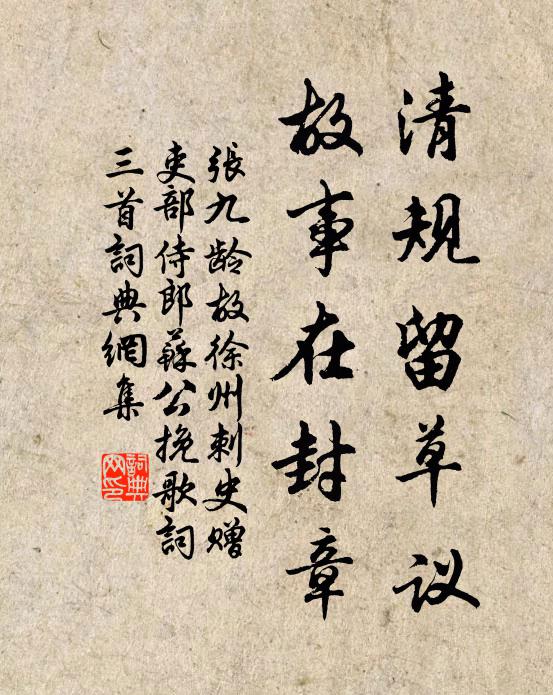 清规留草议
故事在封章
張九龄故徐州刺史赠
吏部侍郎蘇公挽歌詞
三首詞典網集
詞典网印